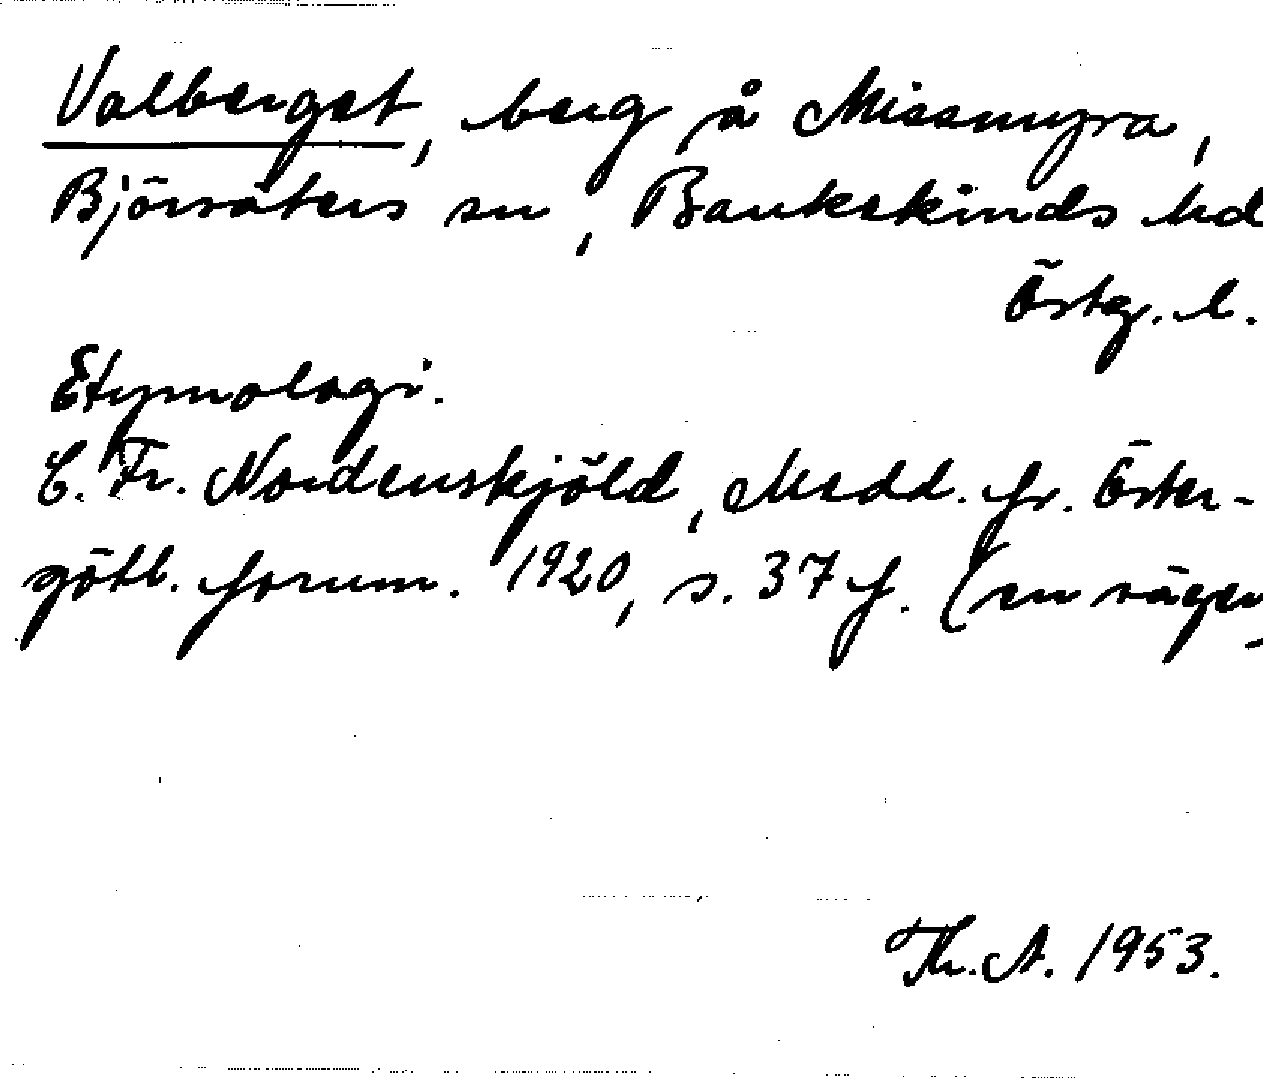 Valberget, berg på Missmyra,
Björsäters sn, Bankekinds hd
Östg. l.
Etymologi.
C. Fr. Nordenskjöld, Medd. fr. Öster-
götl. fornm. 1920, s. 37 f. (en vägen-
Th. A. 1953.